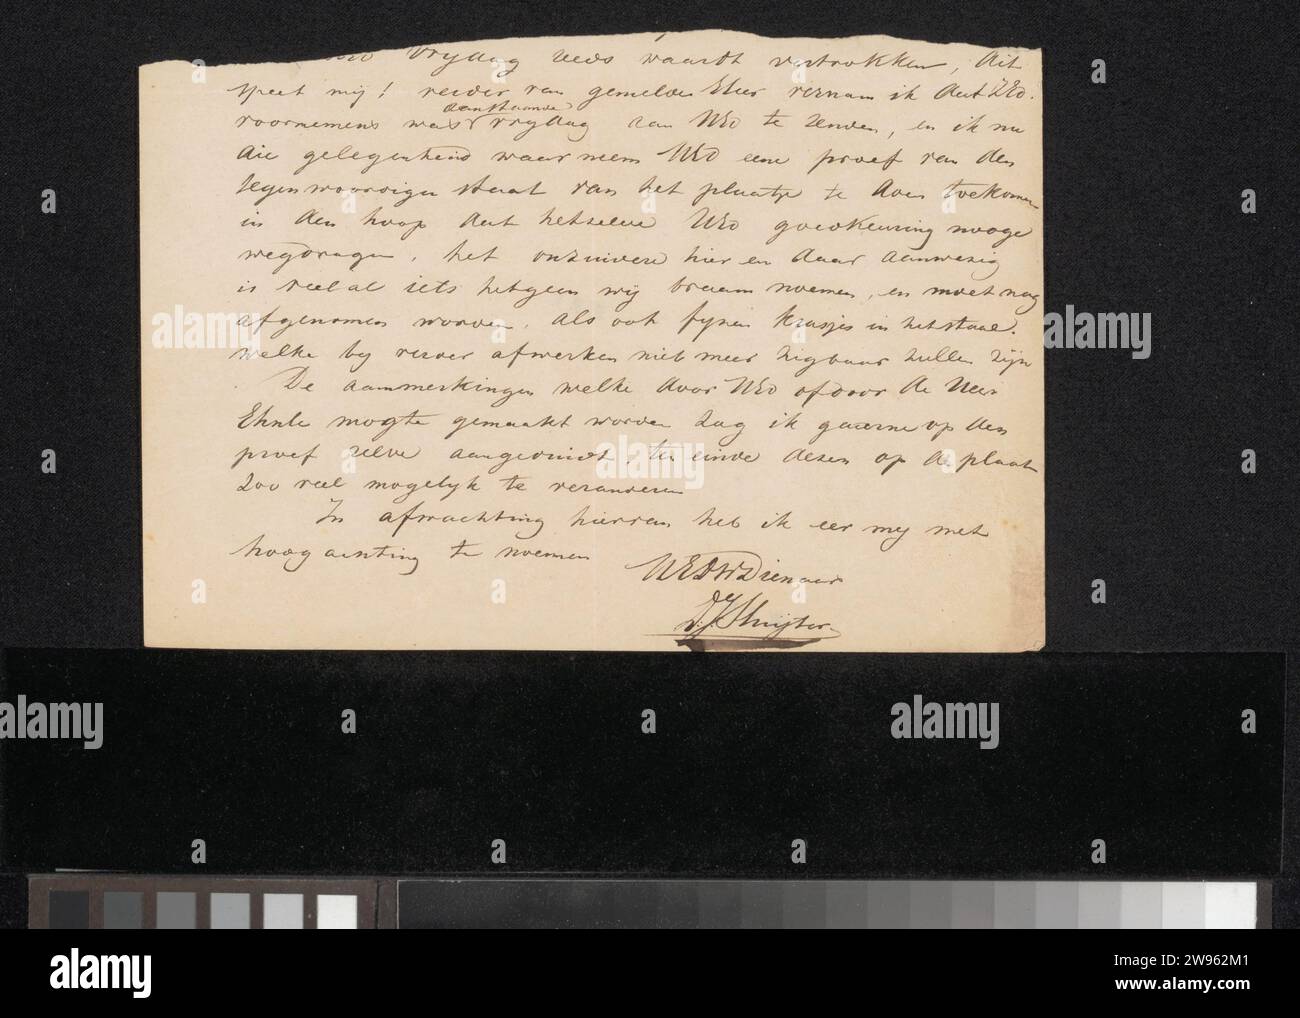 Vrydag reeds waardt vertrokken, dit
speet mij! verder van gemelden Heer vernam ik dat UEd.
voornemens was aanstaande vrydag aan UEd te zenden, en ik nu
die gelegenheid waarneem UEd eene proef van den
tegenwoordigen staat van het plaatje te doen toekomen
in den hoop dat hetzelve UEd goedkeuring mooge
wegdragen, het onzuivere hier en daar aanwezig
is veelal iets hetgeen wij braam noemen, en moet nog
afgenomen worden, als ook fynen krasjes in het staal.
welke by verder afwerken niet meer zigbaar zullen zijn
De aanmerkingen welke door UEd of door de Heer
mogte gemaakt worden zag ik gaarne op den
proef zelve aangeduidt, ten einde dezen op de plaat
zoo veel mogelyk te veranderen
In afwachting hiervan heb ik eer my met
hoogachting te noemen
UEDWDienaar
D.J. Sluyter
alamy
a
alamy
Image ID: 2W962M1
www.alamy.com